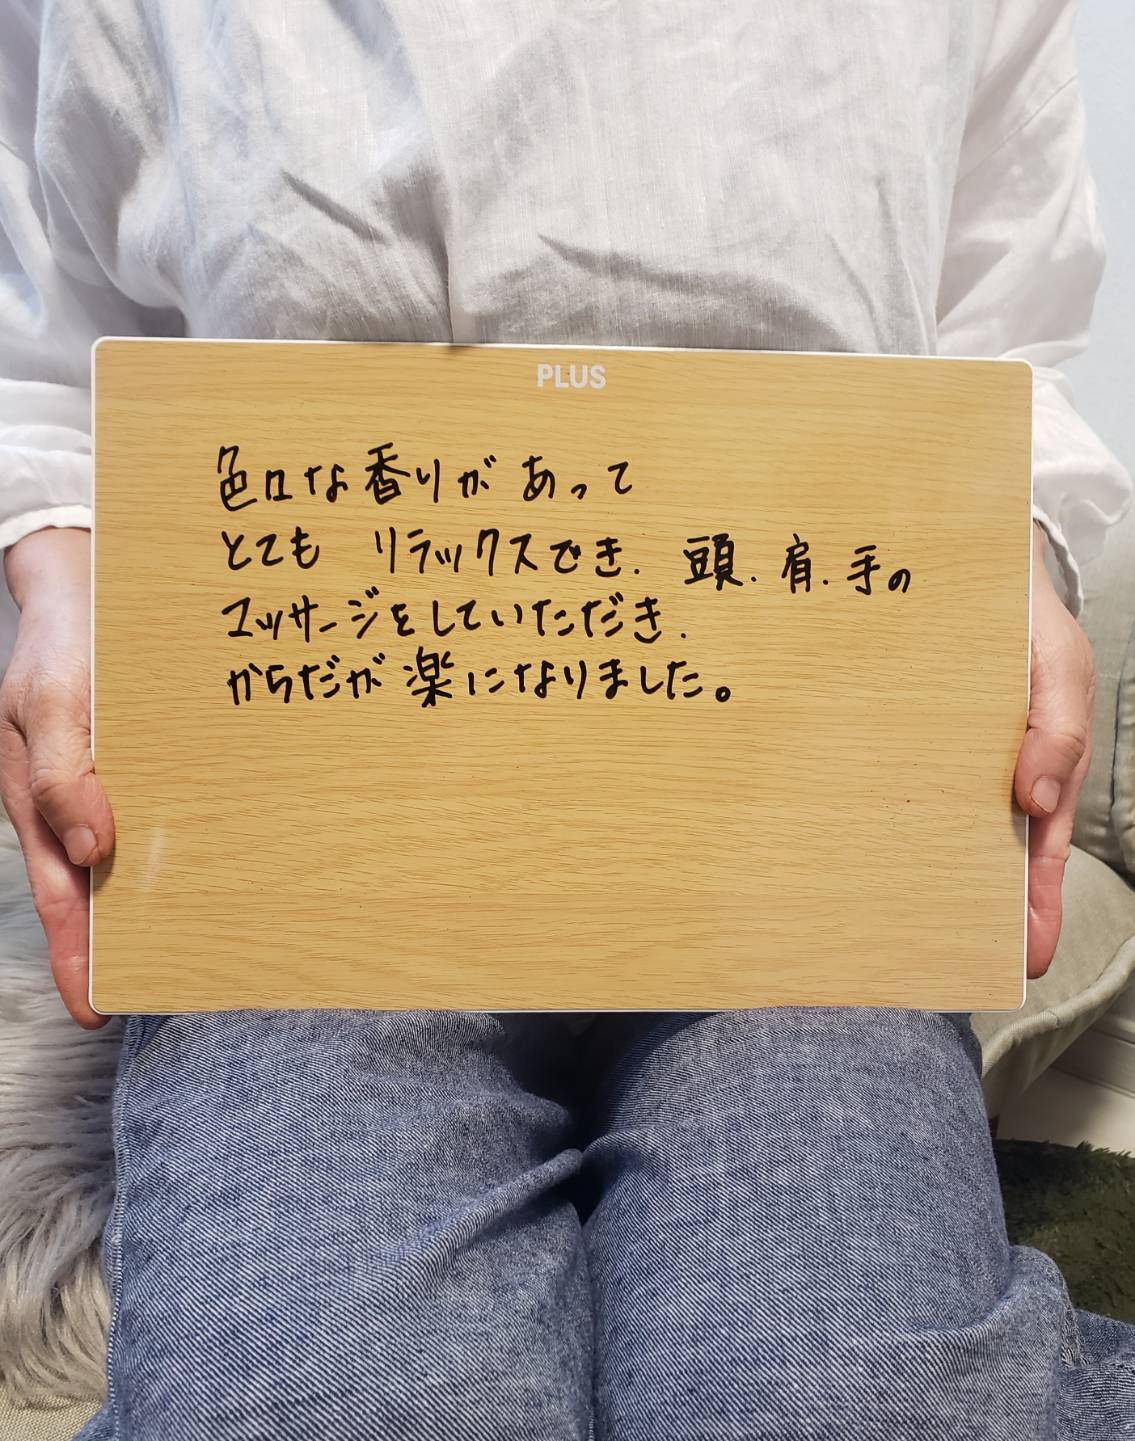 PLUS
色々な香りがあって
とても リラックスでき. 頭. 肩. 手の
マッサージをしていただき.
からだが楽になりました。